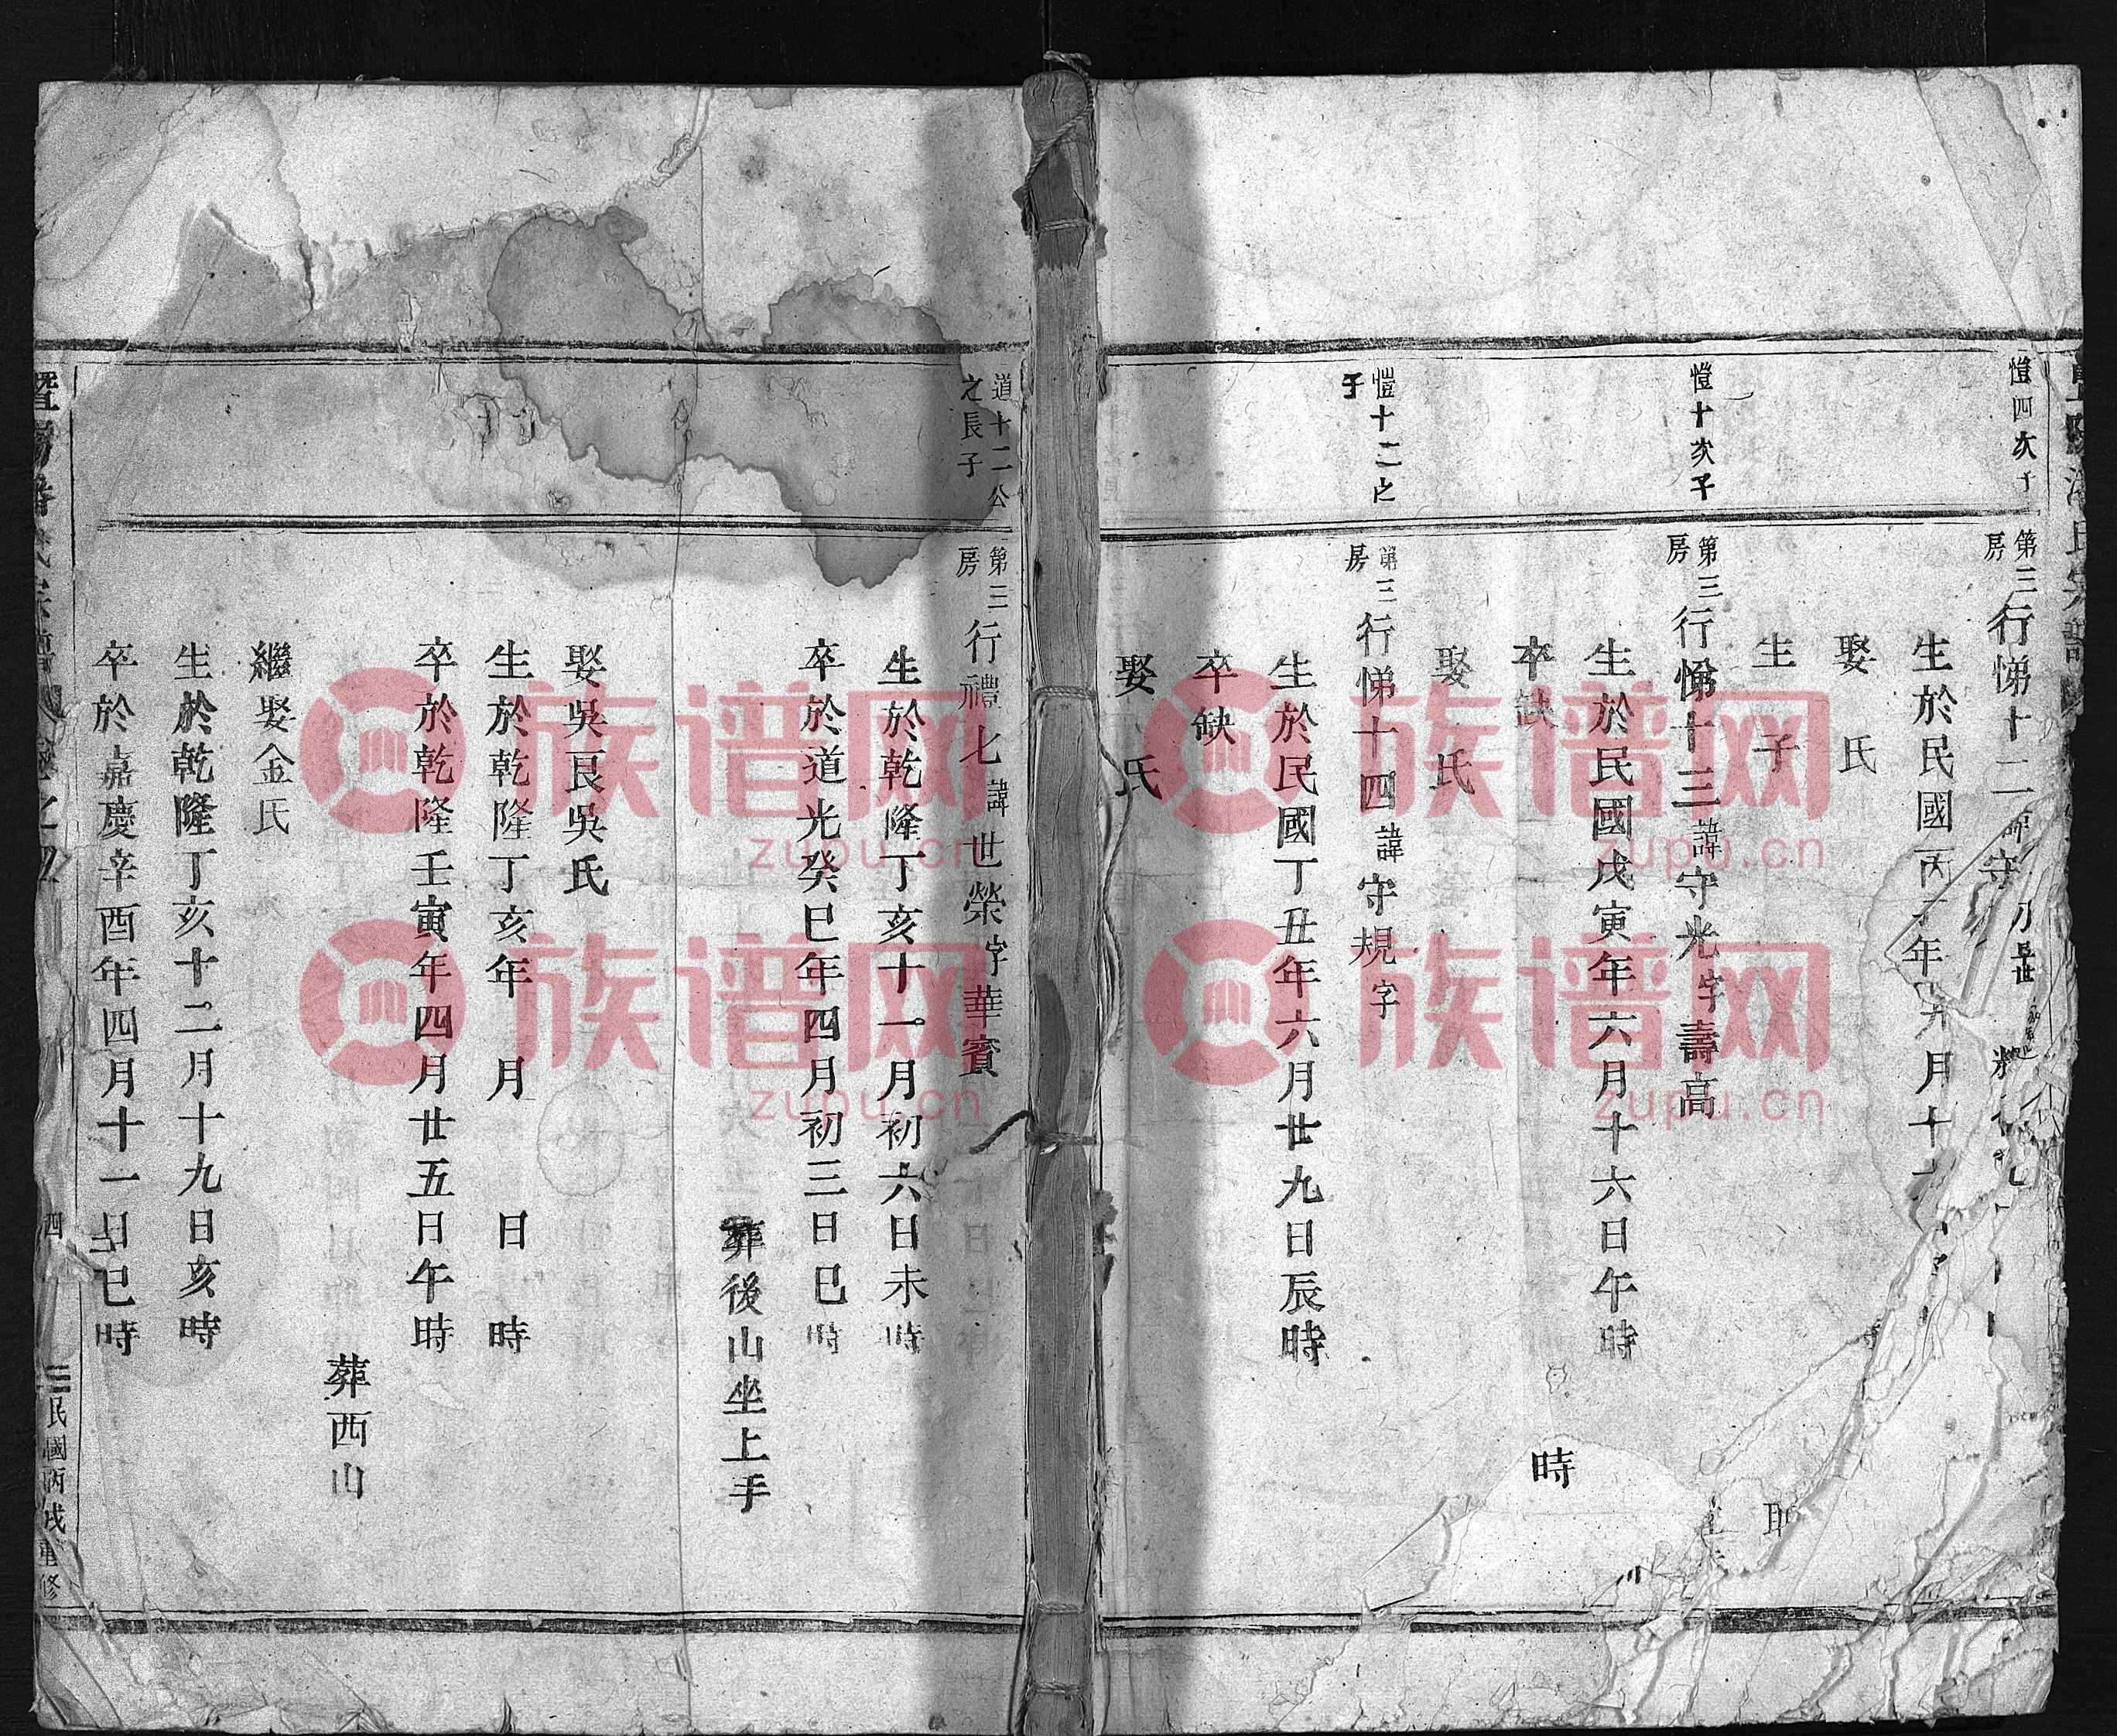 愷四次子
第三房
行悌十二
守
生於民國丙子年
月十
娶 氏
生 子
愷十次子
第三房
行悌十三諱守光字壽高
生於民國戊寅年六月十六日午時
卒缺
時
娶 氏
愷十二之子
第三房
行悌十四諱守規字
生於民國丁丑年六月廿九日辰時
卒缺
娶 氏
道十二公之長子
第三房
行禮七諱世榮字華賓
生於乾隆丁亥十一月初六日未時
卒於道光癸巳年四月初三日巳時
葬後山坐上手
娶吳艮吳氏
生於乾隆丁亥年 月 日 時
卒於乾隆壬寅年四月廿五日午時
葬西山
繼娶金氏
生於乾隆丁亥十二月十九日亥時
卒於嘉慶辛酉年四月十一日巳時
四
民國丙戌重修
族谱网
zupu.cn
族谱网
zupu.cn
族谱网
zupu.cn
族谱网
zupu.cn